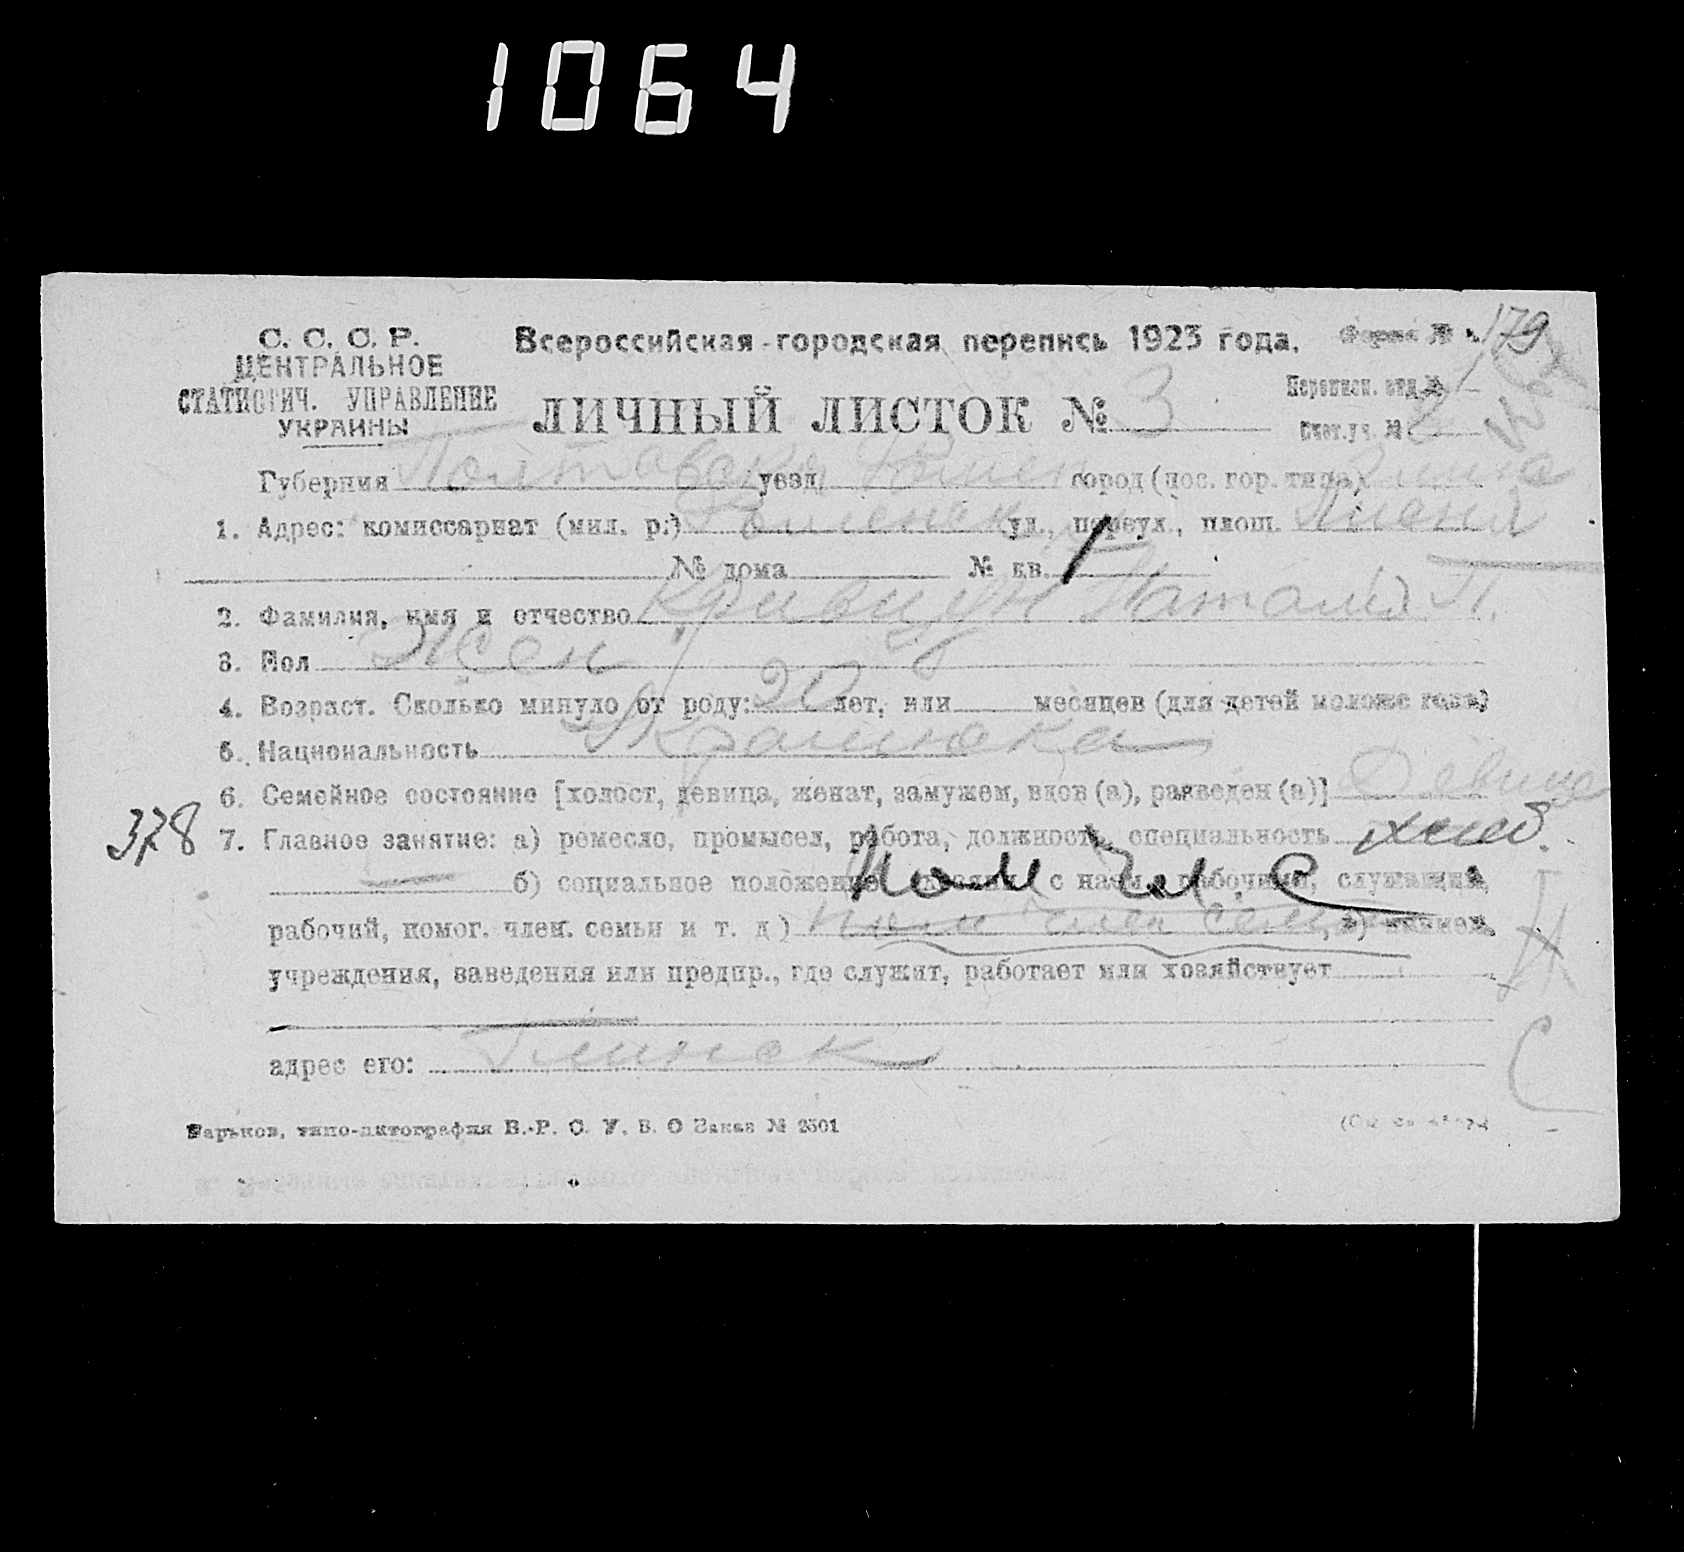 1064
С. С. С. Р.
ЦЕНТРАЛЬНОЕ
СТАТИСТИЧ. УПРАВЛЕНИЕ
УКРАИНЫ
Всероссийская городская перепись 1923 года.
Форма № 179
ЛИЧНЫЙ ЛИСТОК № 3
Переписн. отд. № 1
Счет. уч. № 2
Губерния Полтавска уезд Ромен город (пос. гор. типа)
1. Адрес: комиссариат (мил. р.) Роменск ул., переул., площ.
№ дома № кв. 1
2. Фамилия, имя и отчество Кривцун Наталия П.
3. Пол Жен
4. Возраст. Сколько минуло от роду: 20 лет, или месяцев (для детей моложе года)
5. Национальность Украинска
6. Семейное состояние [холост, девица, женат, замужем, вдов (а), разведен (а)] Девица
378 7. Главное занятие: а) ремесло, промысел, работа, должность, специальность хлеб.
б) социальное положение с наем. рабочими, служащий,
рабочий, помог. член. семьи и т. д) пом член семьи, в) наимен.
учреждения, заведения или предпр., где служит, работает или хозяйствует
адрес его: Глинск
Харьков, типо-литография В.-Р. С. У. В. О Заказ № 2501